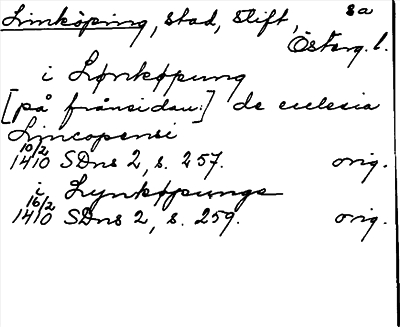 Linköping, stad, stift, sa
Österg. l.
i Lønkøpung
[på frånsidan:] de ecclesia
Lincopensi
10/2
1410 SDns 2, s. 257. orig.
i Lynkøpunge
16/2
1410 SDns 2, s. 259. orig.